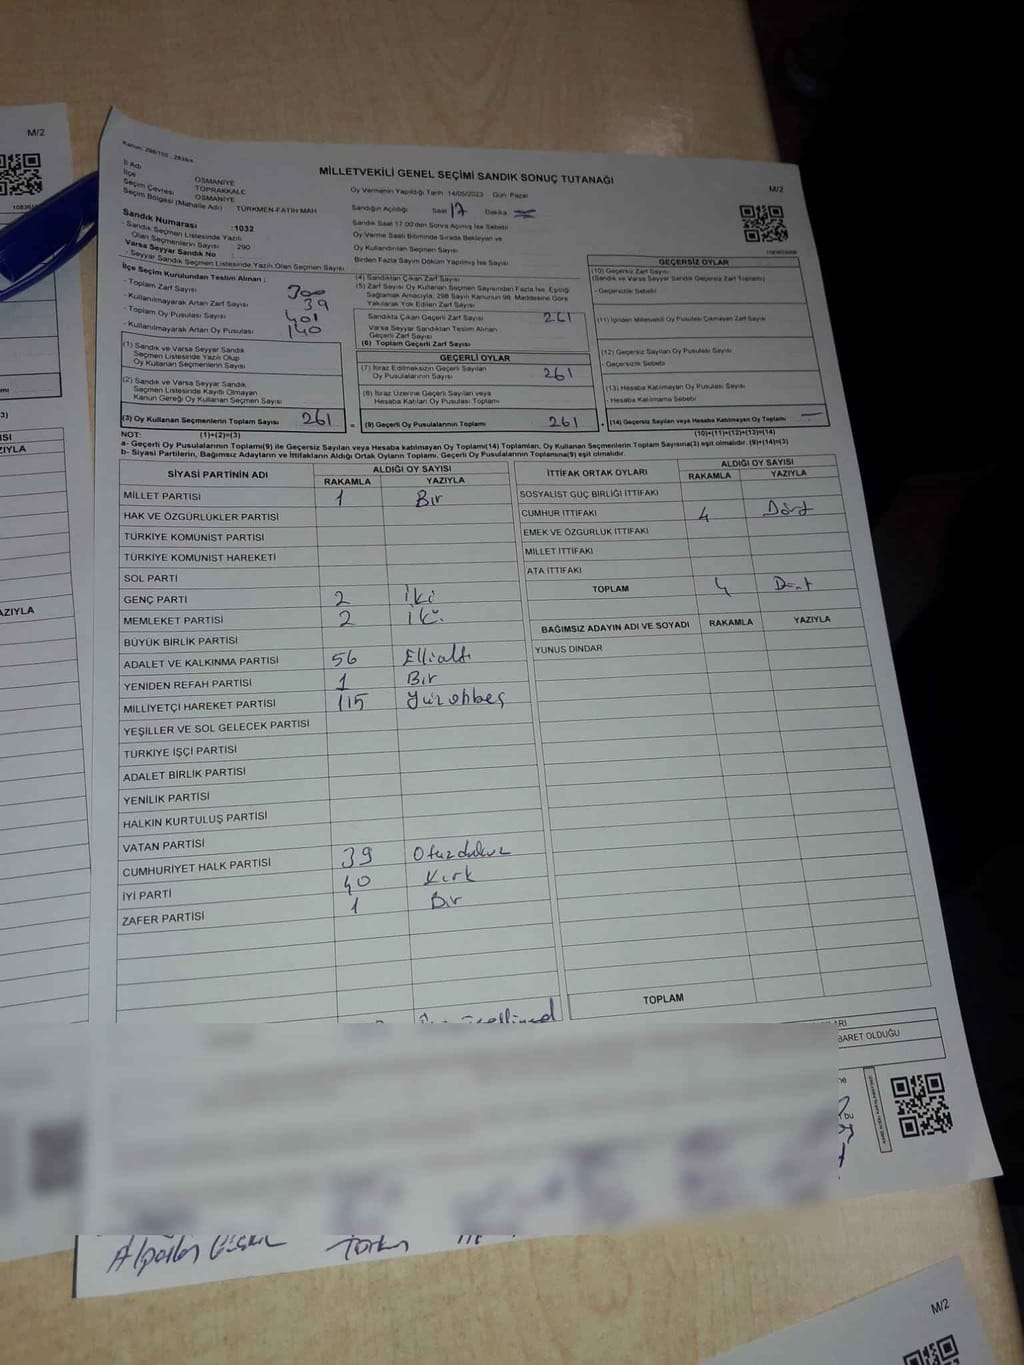 M/2
Kanun: 298/105 , 2839/4
MİLLETVEKİLİ GENEL SEÇİMİ SANDIK SONUÇ TUTANAĞI
M/2
İl Adı OSMANİYE
İlçe TOPRAKKALE
Seçim Çevresi OSMANİYE
Seçim Bölgesi (Mahalle Adı) TÜRKMEN-FATİH MAH
Oy Vermenin Yapıldığı Tarih 14/05/2023 Gün Pazar
Sandığın Açıldığı Saat 17 Dakika
Sandık Saat 17:00'den Sonra Açılmış İse Sebebi
Oy Verme Saati Bitiminde Sırada Bekleyen ve
Oy Kullandırılan Seçmen Sayısı
Birden Fazla Sayım Döküm Yapılmış İse Sayısı
Sandık Numarası :1032
- Sandık Seçmen Listesinde Yazılı
Olan Seçmenlerin Sayısı : 290
Varsa Seyyar Sandık No
- Seyyar Sandık Seçmen Listesinde Yazılı Olan Seçmen Sayısı
İlçe Seçim Kurulundan Teslim Alınan :
- Toplam Zarf Sayısı 300
- Kullanılmayarak Artan Zarf Sayısı 39
- Toplam Oy Pusulası Sayısı 401
- Kullanılmayarak Artan Oy Pusulası 140
(1) Sandık ve Varsa Seyyar Sandık
Seçmen Listesinde Yazılı Olup
Oy Kullanan Seçmenlerin Sayısı
(2) Sandık ve Varsa Seyyar Sandık
Seçmen Listesinde Kayıtlı Olmayan
Kanun Gereği Oy Kullanan Seçmen Sayısı
(3) Oy Kullanan Seçmenlerin Toplam Sayısı 261
(1)+(2)=(3)
(4) Sandıktan Çıkan Zarf Sayısı
(5) Zarf Sayısı Oy Kullanan Seçmen Sayısından Fazla İse, Eşitliği
Sağlamak Amacıyla, 298 Sayılı Kanunun 98. Maddesine Göre
Yakılarak Yok Edilen Zarf Sayısı
Sandıkta Çıkan Geçerli Zarf Sayısı 261
Varsa Seyyar Sandıktan Teslim Alınan
Geçerli Zarf Sayısı
(6) Toplam Geçerli Zarf Sayısı
GEÇERLİ OYLAR
(7) İtiraz Edilmeksizin Geçerli Sayılan
Oy Pusulalarının Sayısı 261
(8) İtiraz Üzerine Geçerli Sayılan veya
Hesaba Katılan Oy Pusulası Toplamı
= (9) Geçerli Oy Pusulalarının Toplamı 261
GEÇERSİZ OYLAR
(10) Geçersiz Zarf Sayısı
(Sandık ve Varsa Seyyar Sandık Geçersiz Zarf Toplamı)
- Geçersizlik Sebebi
(11) İçinden Milletvekili Oy Pusulası Çıkmayan Zarf Sayısı
(12) Geçersiz Sayılan Oy Pusulası Sayısı
- Geçersizlik Sebebi
(13) Hesaba Katılmayan Oy Pusulası Sayısı
- Hesaba Katılmama Sebebi
+ (14) Geçersiz Sayılan veya Hesaba Katılmayan Oy Toplamı —
(10)+(11)+(12)+(13)=(14)
NOT:
a- Geçerli Oy Pusulalarının Toplamı(9) ile Geçersiz Sayılan veya Hesaba katılmayan Oy Toplamı(14) Toplamları, Oy Kullanan Seçmenlerin Toplam Sayısına(3) eşit olmalıdır. (9)+(14)=(3)
b- Siyasi Partilerin, Bağımsız Adayların ve İttifakların Aldığı Ortak Oyların Toplamı, Geçerli Oy Pusulalarının Toplamına(9) eşit olmalıdır.
SİYASİ PARTİNİN ADI ALDIĞI OY SAYISI
RAKAMLA YAZIYLA
MİLLET PARTİSİ 1 Bir
HAK VE ÖZGÜRLÜKLER PARTİSİ
TÜRKİYE KOMÜNİST PARTİSİ
TÜRKİYE KOMÜNİST HAREKETİ
SOL PARTİ
GENÇ PARTİ 2 İki
MEMLEKET PARTİSİ 2 İki
BÜYÜK BİRLİK PARTİSİ
ADALET VE KALKINMA PARTİSİ 56 Ellialtı
YENİDEN REFAH PARTİSİ 1 Bir
MİLLİYETÇİ HAREKET PARTİSİ 115 Yüzonbeş
YEŞİLLER VE SOL GELECEK PARTİSİ
TÜRKİYE İŞÇİ PARTİSİ
ADALET BİRLİK PARTİSİ
YENİLİK PARTİSİ
HALKIN KURTULUŞ PARTİSİ
VATAN PARTİSİ
CUMHURİYET HALK PARTİSİ 39 Otuzdokuz
İYİ PARTİ 40 Kırk
ZAFER PARTİSİ 1 Bir
İTTİFAK ORTAK OYLARI ALDIĞI OY SAYISI
RAKAMLA YAZIYLA
SOSYALİST GÜÇ BİRLİĞİ İTTİFAKI
CUMHUR İTTİFAKI 4 Dört
EMEK VE ÖZGÜRLÜK İTTİFAKI
MİLLET İTTİFAKI
ATA İTTİFAKI
TOPLAM 4 Dört
BAĞIMSIZ ADAYIN ADI VE SOYADI RAKAMLA YAZIYLA
YUNUS DİNDAR
TOPLAM
BARET OLDUĞU
M/2